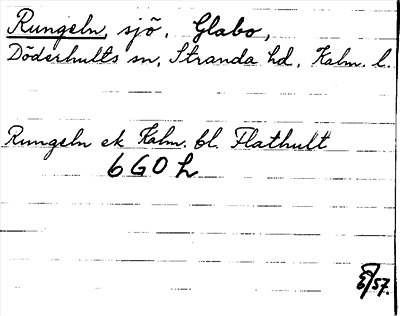 Rungeln, sjö, Glabo,
Döderhults sn, Stranda hd, Kalm. l.
Rungeln ek Kalm. bl. Flathult
6 G O h
/57.